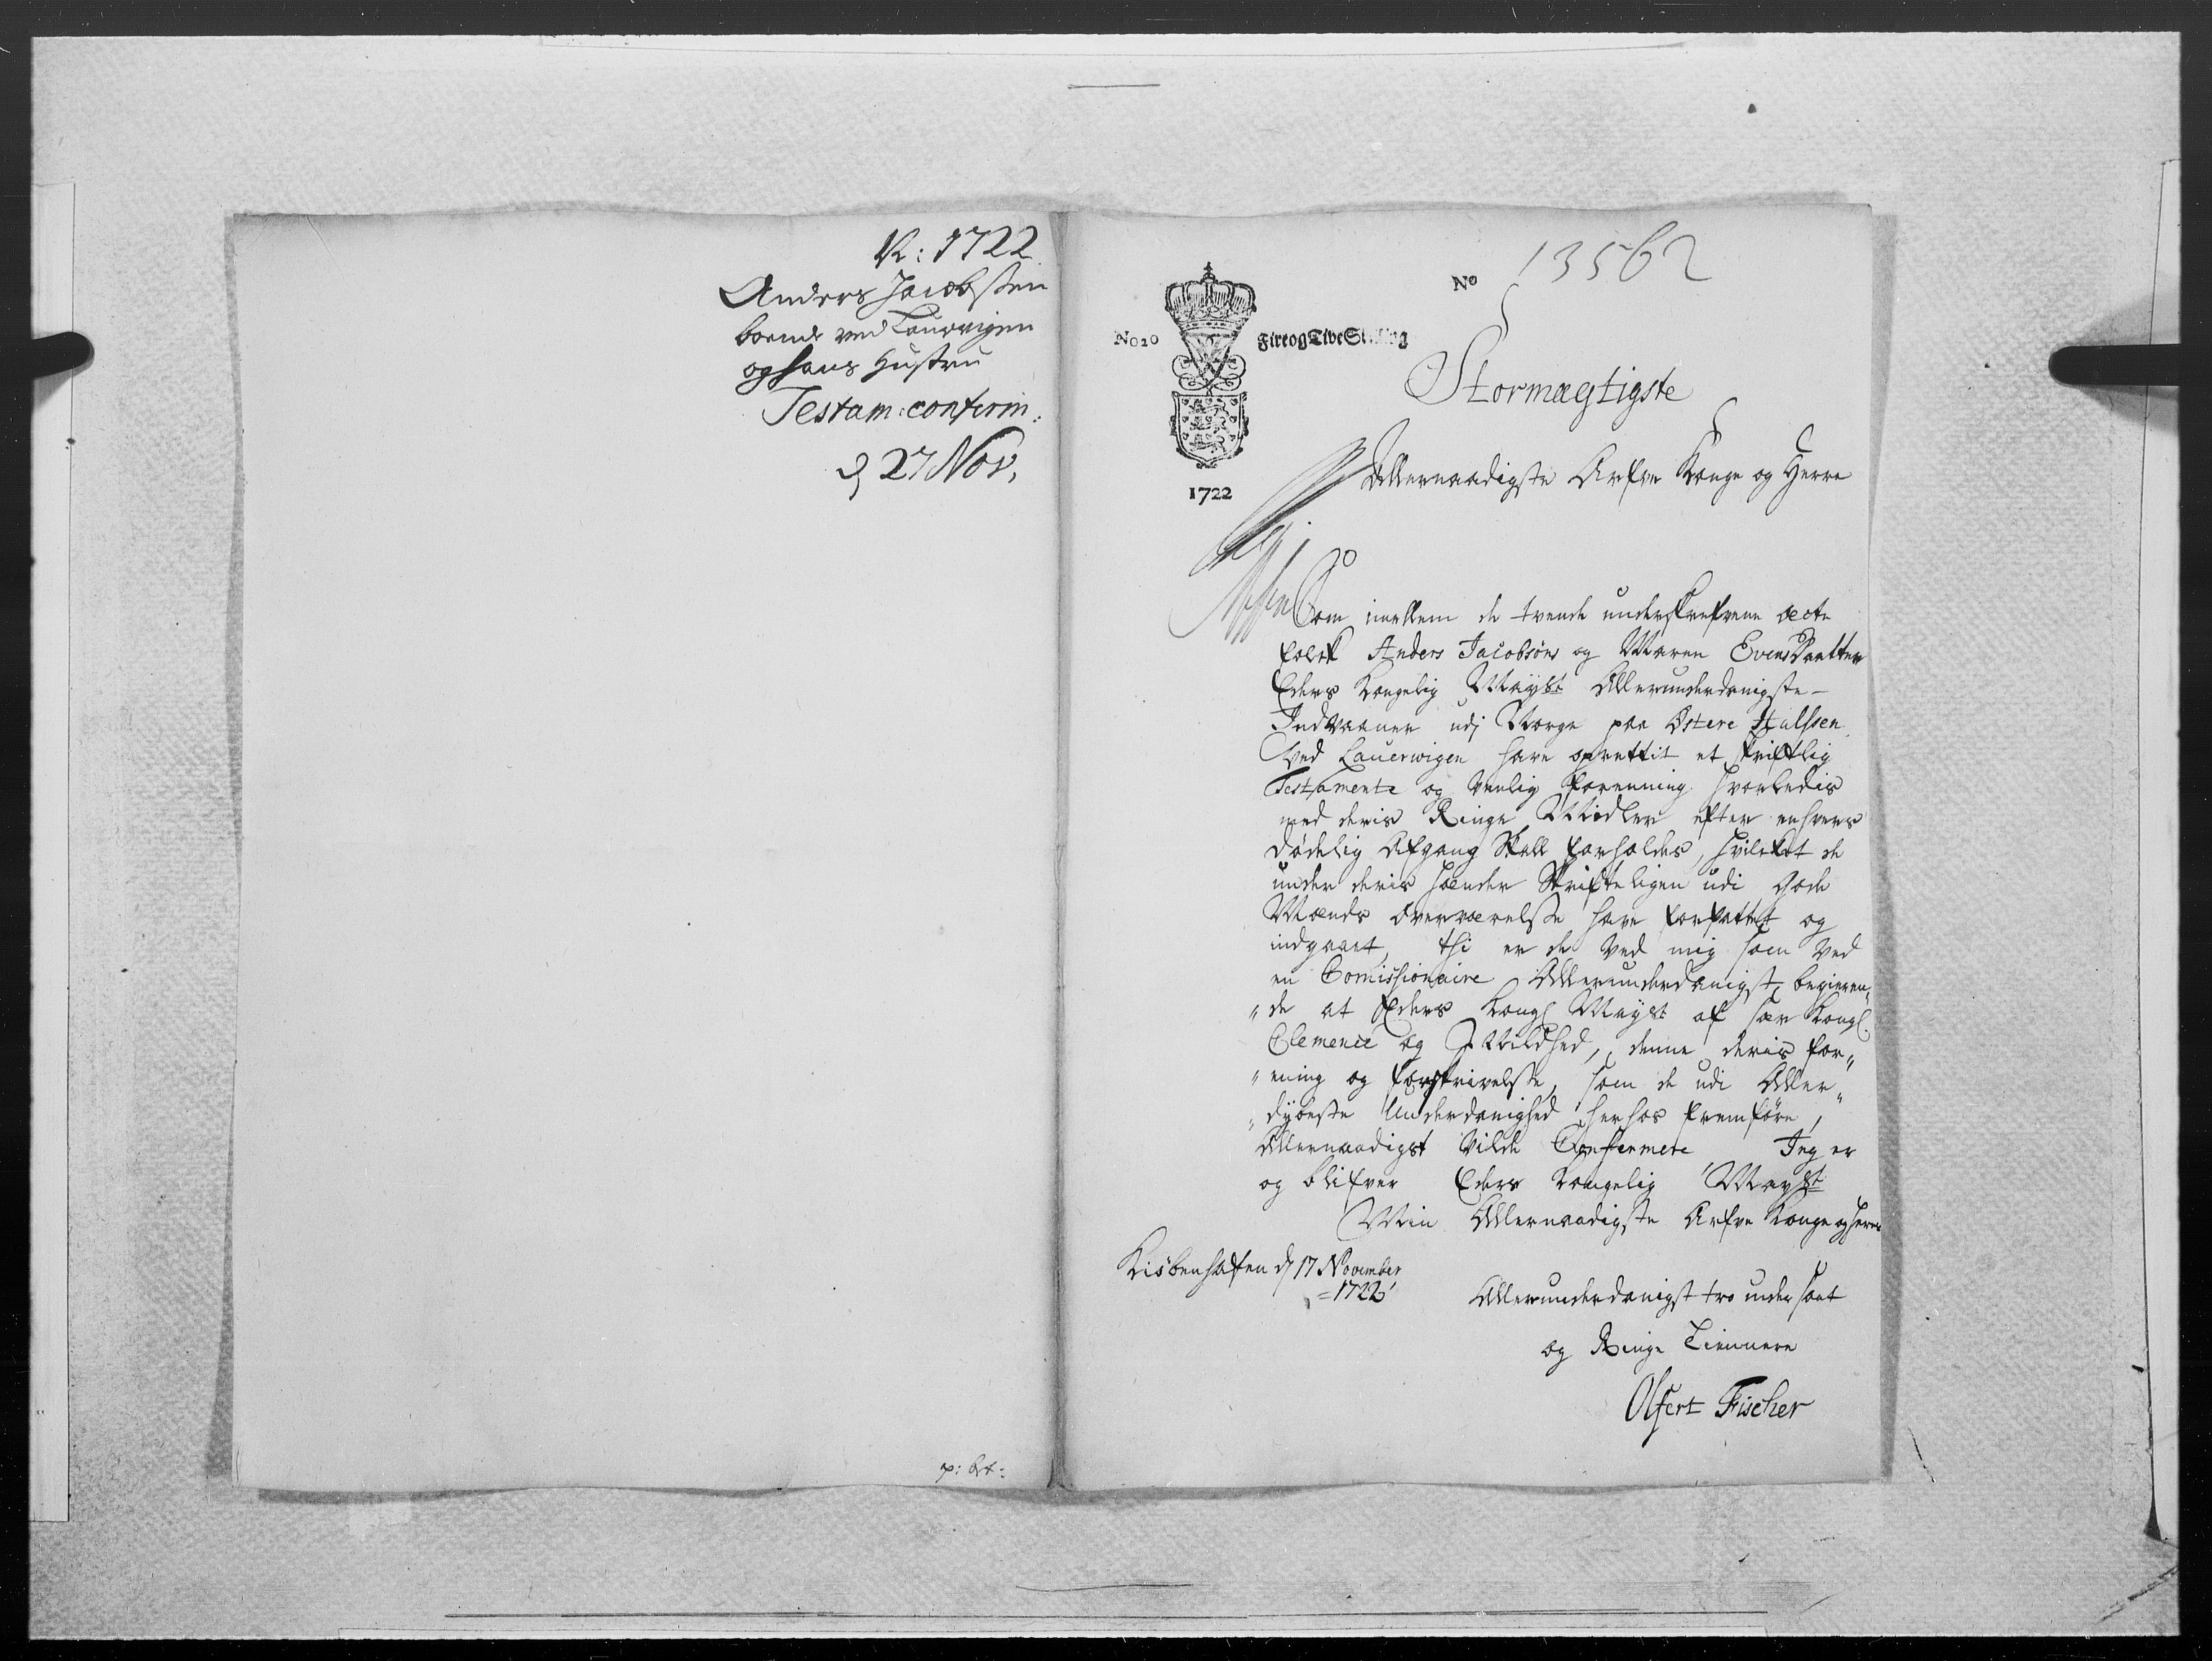 N: 1722
Anders Jacobsten
boende ved Laurvigen
og hans Hustru
Testam: confirm:
d 27 Nov,
No 13562
No20 Fire og Tive Skilling
1722
Stormægtigste
Allernaadigste Arfve Konge og Herre
Som imellem de tvende underskrefvene ecte
folck Anders Jacobsøns og Maren EvensDaatter
Eders Kongelig Mayst Allerunderdanigste
Indvaaner udj Norge paa Østere Halssen
Ved Lauerwigen have oprettit et skriftlig
Testamente og venlig forenning hvorledis
med deris Ringe Midler efter enhvers
dødelig Afgang Skall forholdes, hvilcket de
under deris hænder Skrifteligen udi gode
Mænds overværelsse have forfattet og
indgaaet, thi er de ved mig som ved
en Comissionaire Allerunderdanigst begieren„
„de at Eders Kongl Mayst af sær Kongl.
Clemence og Mildhed, denne deris for„
„ening og forskrivelsse, som de udi Aller„
„dybeste Underdanighed herhos fremføre,
Allernaadigst vilde Confermere Jeg er
og blifver Eders Kongelig Mayst
Min Allernaadigste Arfve Konge og Herres
Kiøbenhafen d 17 November
1722
Allerunderdanigst tro undersaat
og Ringe Tiennere
Olfert Fischer